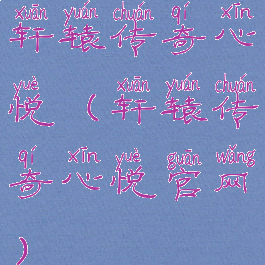 xuān yuán chuán qí xīn
轩辕传奇心
yuè xuān yuán chuán
悦（轩辕传
qí xīn yuè guān wǎng
奇心悦官网
）